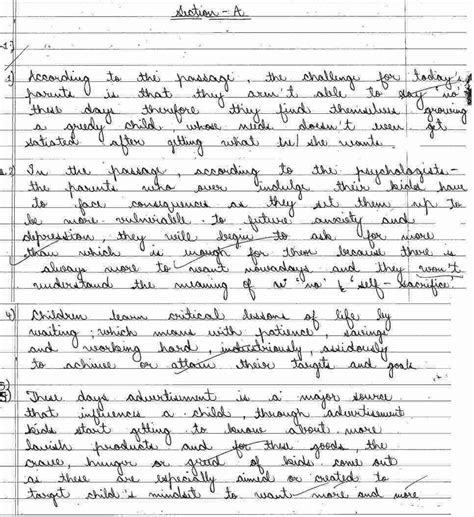 Section - A
1) According to the passage, the challenge for today's
parents is that they aren't able to say 'no'
these days therefore they find themselves growing
a greedy child whose needs doesn't even get
satiated after getting what he/she wants.
2) In the passage, according to the psychologists -
the parents who over indulge their kids have
to face consequences as they set them up to
be more vulnerable to future anxiety and
depression, they will begin to ask for more
than which is enough for them because there is
always more to want nowadays and they won't
understand the meaning of 'no' & 'self-sacrifice'
4) Children learn critical lessons of life by
waiting; which means with patience, savings
and working hard, industriously, assidously
to achieve or attain their targets and goals
These days advertisment is a major source
that influences a child, through advertisment
kids start getting to know about more
lavish products and for these goods, the
crave, hunger or greed of kids come out
as these are especially aimed or created to
target child's mindset to want more and more